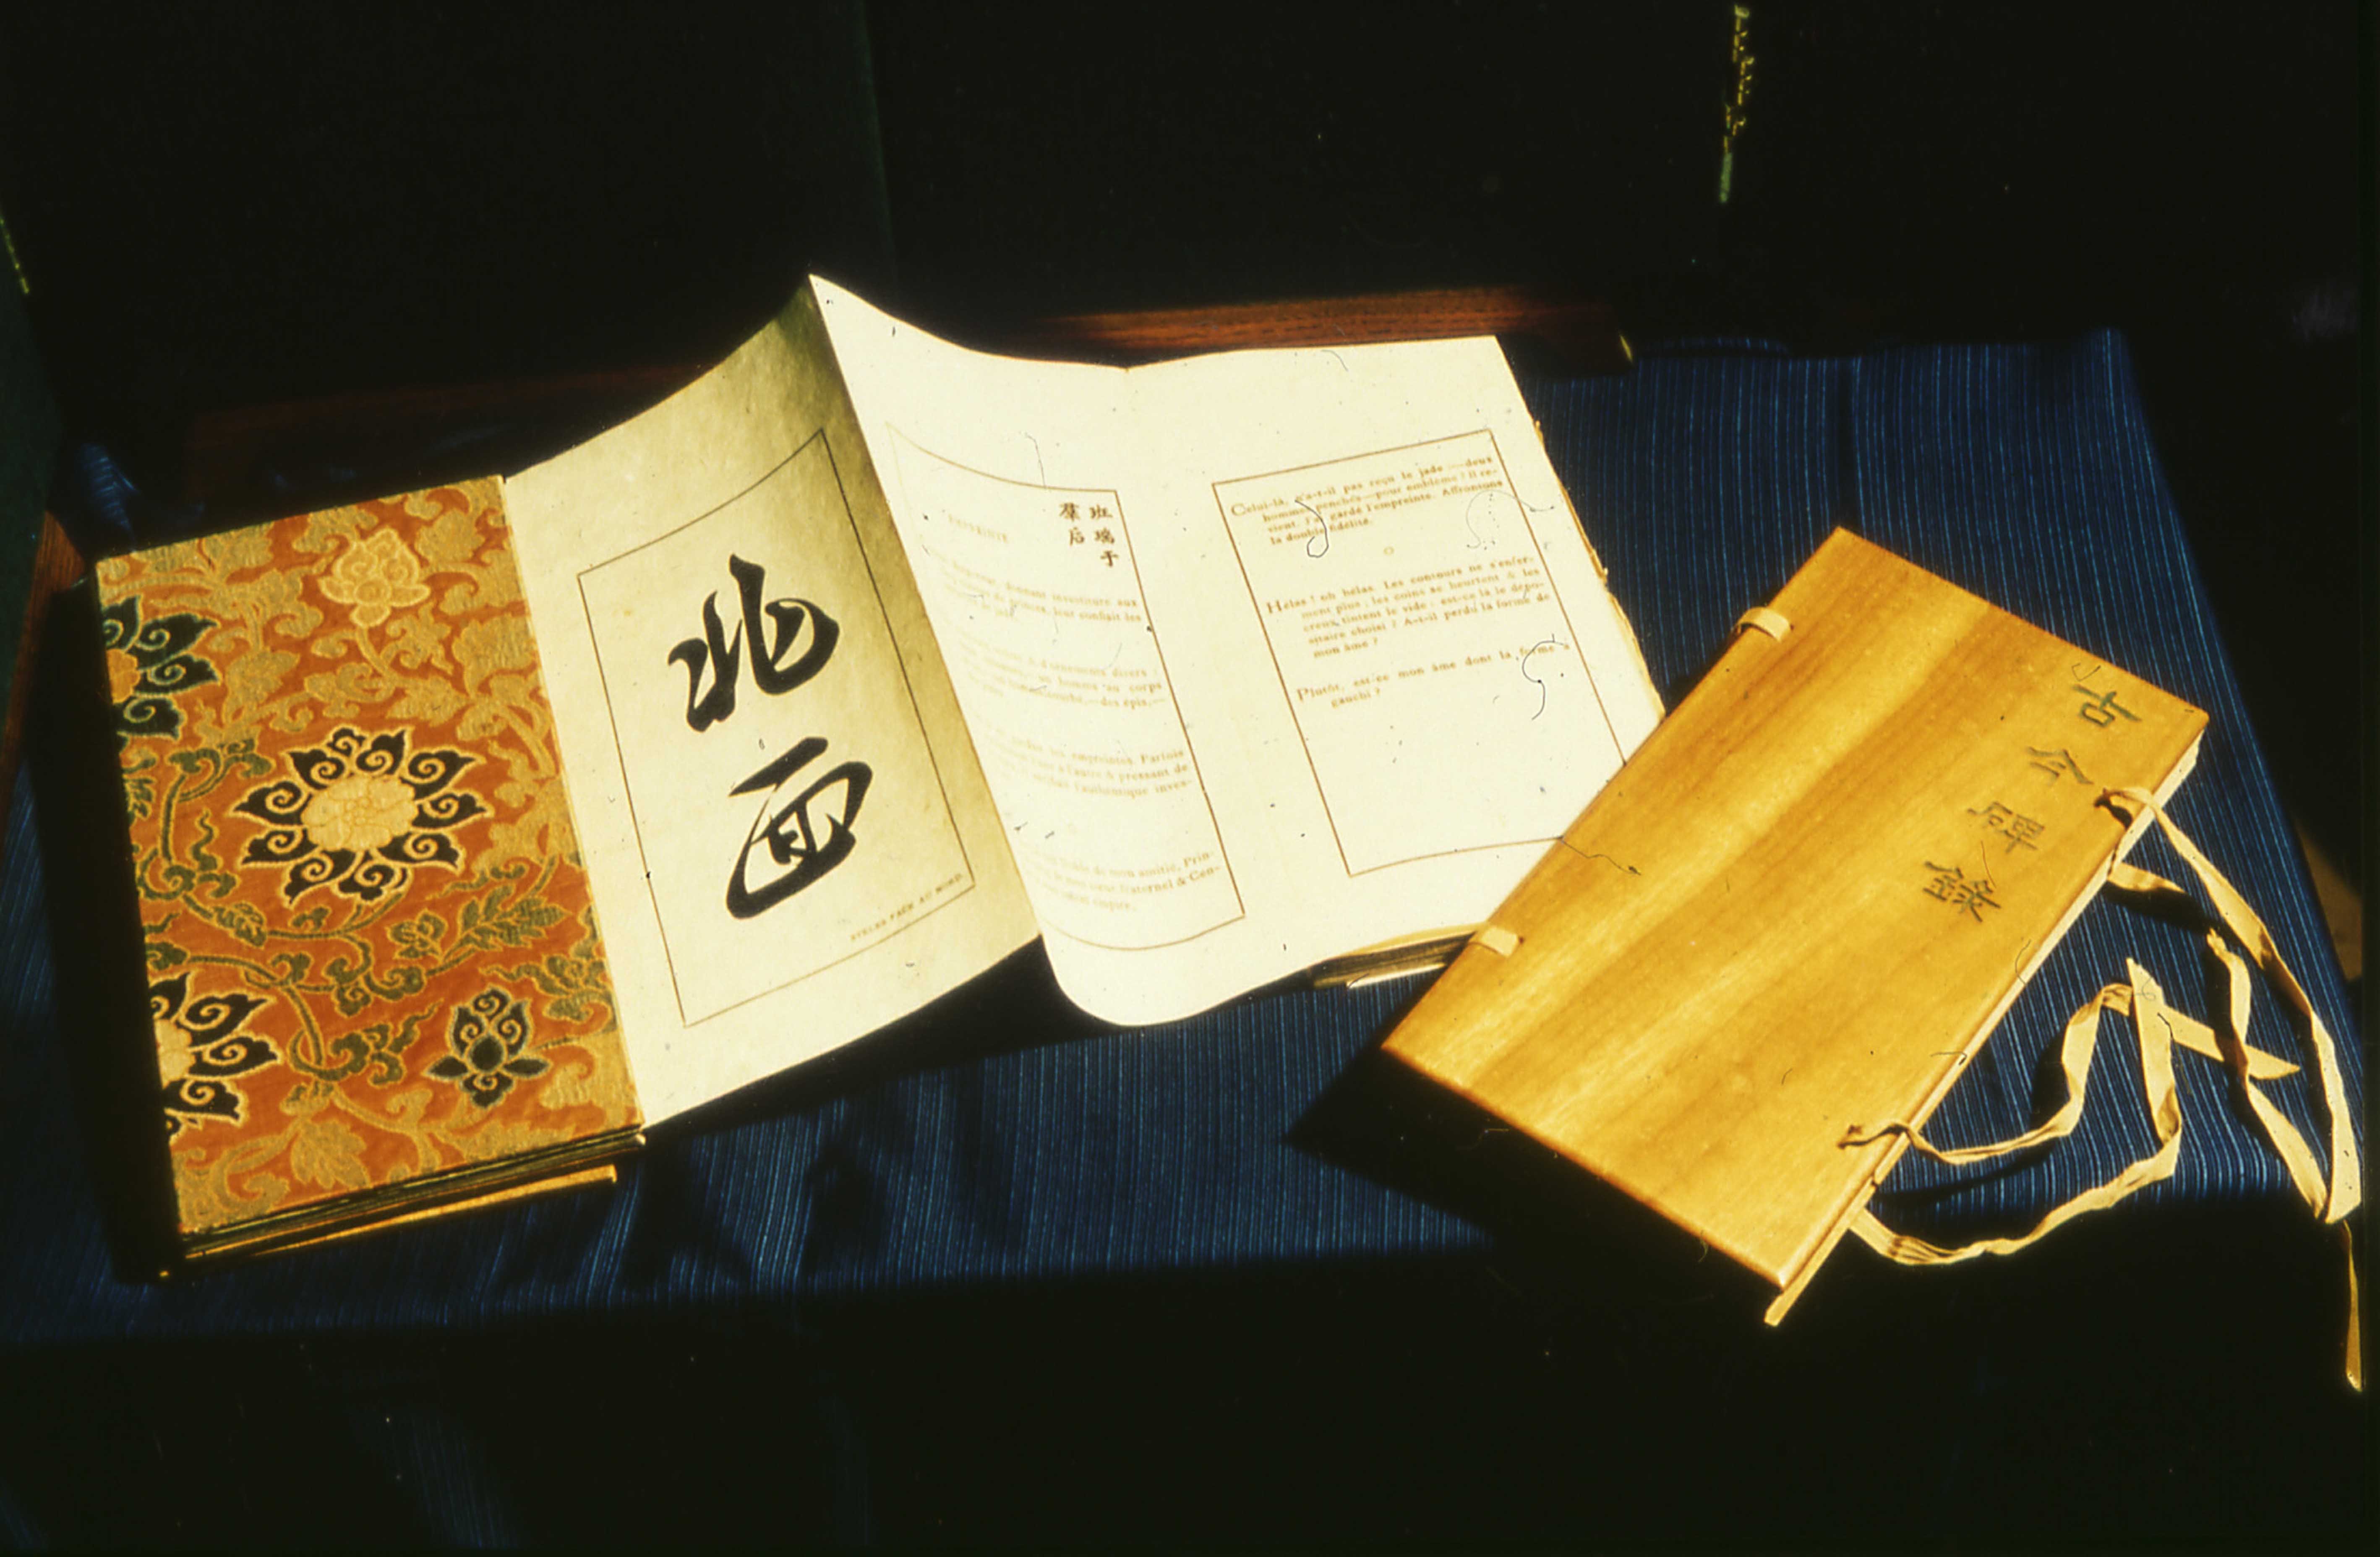 北面
STÈLES FACE AU NORD
EMPREINTE
班瑞于
羣后
donnant investiture aux
de princes, leur confiait les
d'ornements divers :
un homme au corps
des épis,—
empreintes. Parfois
à l'autre & pressant de
l'authentique inves-
de mon amitié, Prin-
mon cœur fraternel & Cen-
empire.
Celui-là, n'a-t-il pas reçu le jade —deux
hommes penchés—pour emblème ? Il re-
vient. J'ai gardé l'empreinte. Affrontons
la double fidélité.
Hélas ! oh hélas. Les contours ne s'enfer-
ment plus ; les coins se heurtent & les
creux, tintent le vide : est-ce là le dépo-
sitaire choisi ? A-t-il perdu la forme de
mon âme ?
Plutôt, est-ce mon âme dont la forme a
gauchi ?
古今碑錄